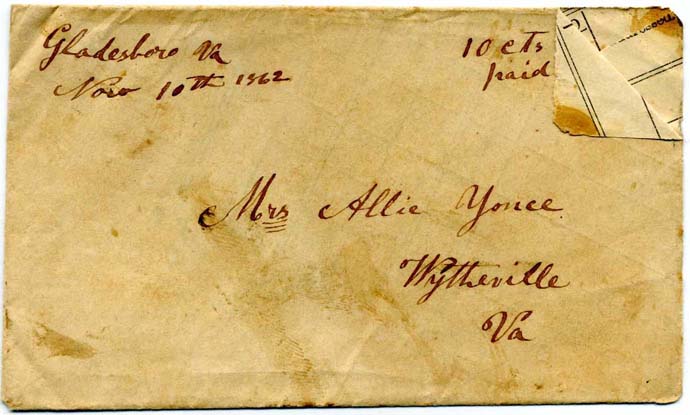 Gladesboro Va
Nov 10th 1862
10 cts
paid
Mrs Allie Yonce
Wytheville
Va